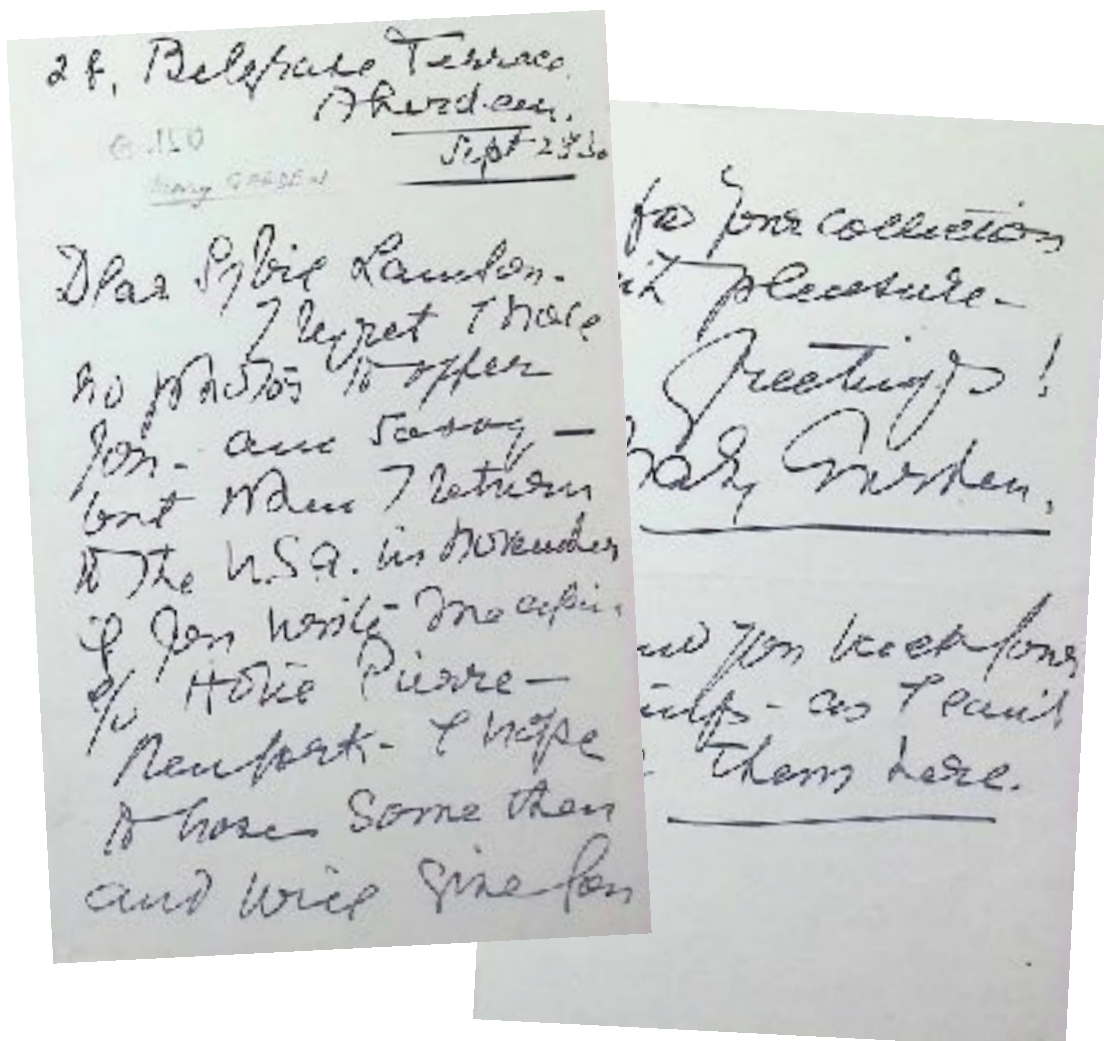 28, Belgrave Terrace
Aberdeen.
Sept
Mary GARDEN
Dear Sylvie
I regret I have
no photos to offer
you - am sorry —
but when I return
to the U.S.A. in November
if you write me again
c/o Hotel Pierre —
New York - I hope
to have some then
and will give you
for your collection
pleasure -
Greetings!
Mary Garden.
you keep your
as I can't
them here.